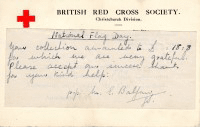 BRITISH RED CROSS SOCIETY.
Christchurch Division.
National Flag Day.
Your collection amounted to £ : 18 : 9
for which we are very grateful.
Please accept our sincere thanks
for your kind help:
p.p.